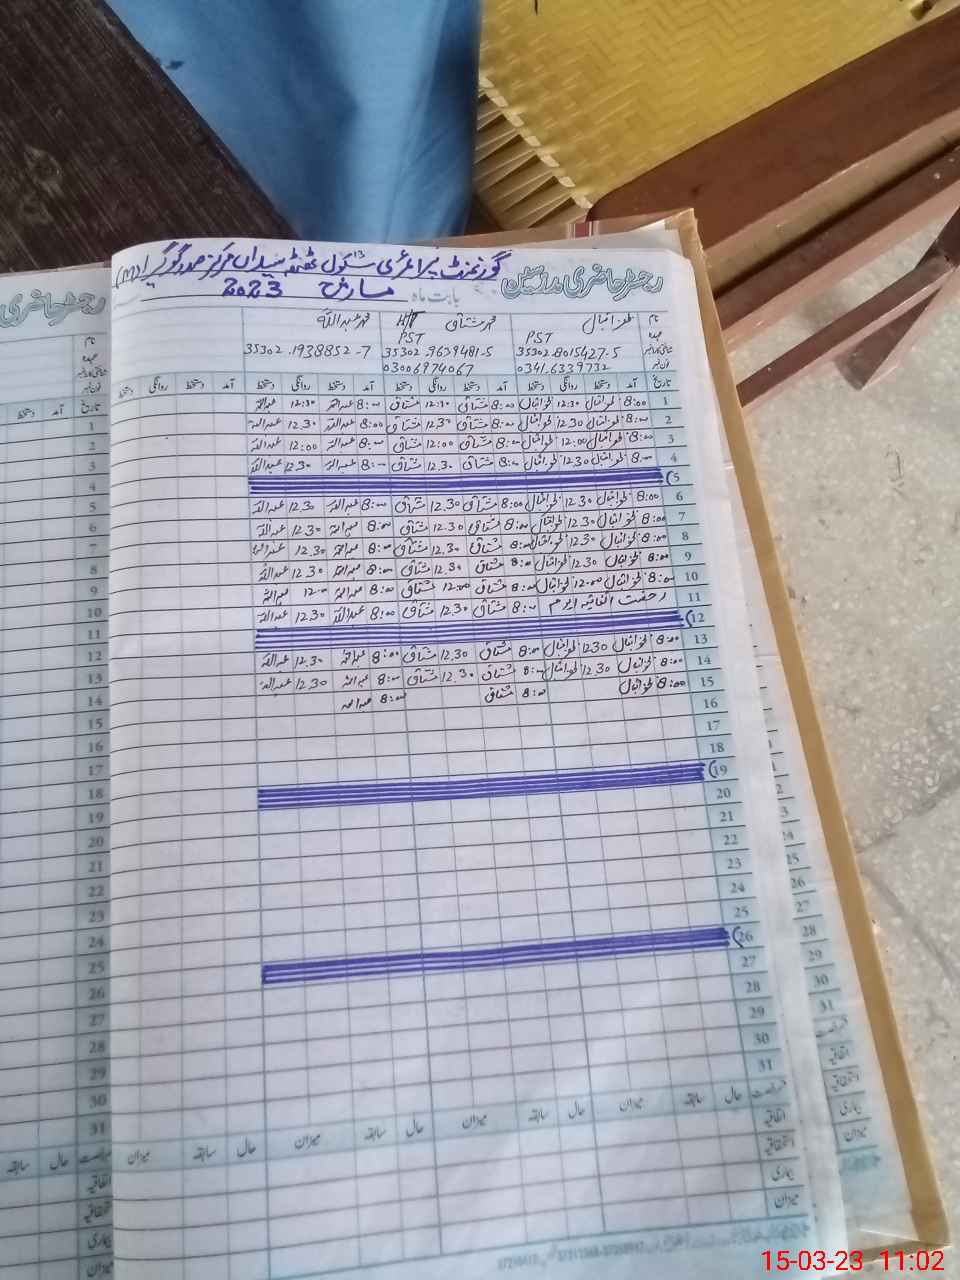 رجسٹر حاضری مدرسین
گورنمنٹ پرائمری سکول ٹھٹھہ سیداں مرکز صدر گوگیرا (M)
بابت ماہ مارچ 2023
نام ظفر اقبال محمد مشتاق محمد عبداللہ
عہدہ PST PST H/T
شناختی کارڈ نمبر 35302-8015427-5 35302-9639481-5 35302-1938852-7
فون نمبر 0341-6339732 03006974067
تاریخ آمد دستخط روانگی دستخط آمد دستخط روانگی دستخط آمد دستخط روانگی دستخط آمد دستخط روانگی دستخط
1 8:00 ظفر اقبال 12:30 ظفر اقبال 8:00 مشتاق 12:30 مشتاق 8:00 عبداللہ 12:30 عبداللہ
2 8:00 ظفر اقبال 12.30 ظفر اقبال 8:00 مشتاق 12.30 مشتاق 8:00 عبداللہ 12.30 عبداللہ
3 8:00 ظفر اقبال 12:00 ظفر اقبال 8:00 مشتاق 12:00 مشتاق 8:00 عبداللہ 12:00 عبداللہ
4 8:00 ظفر اقبال 12.30 ظفر اقبال 8:00 مشتاق 12.30 مشتاق 8:00 عبداللہ 12.30 عبداللہ
5
6 8:00 ظفر اقبال 12.30 ظفر اقبال 8:00 مشتاق 12.30 مشتاق 8:00 عبداللہ 12.30 عبداللہ
7 8:00 ظفر اقبال 12.30 ظفر اقبال 8:00 مشتاق 12.30 مشتاق 8:00 عبداللہ 12.30 عبداللہ
8 8:00 ظفر اقبال 12.30 ظفر اقبال 8:00 مشتاق 12.30 مشتاق 8:00 عبداللہ 12.30 عبداللہ
9 8:00 ظفر اقبال 12.30 ظفر اقبال 8:00 مشتاق 12.30 مشتاق 8:00 عبداللہ 12.30 عبداللہ
10 8:00 ظفر اقبال 12:00 ظفر اقبال 8:00 مشتاق 12:00 مشتاق 8:00 عبداللہ 12:00 عبداللہ
11 رخصت اتفاقیہ ایوم 8:00 مشتاق 12.30 مشتاق 8:00 عبداللہ 12.30 عبداللہ
12
13 8:00 ظفر اقبال 12.30 ظفر اقبال 8:00 مشتاق 12.30 مشتاق 8:00 عبداللہ 12.30 عبداللہ
14 8:00 ظفر اقبال 12.30 ظفر اقبال 8:00 مشتاق 12.30 مشتاق 8:00 عبداللہ 12.30 عبداللہ
15 8:00 ظفر اقبال 8:00 مشتاق 8:00 عبداللہ
16
17
18
19
20
21
22
23
24
25
26
27
28
29
30
31
رخصت سابقہ حال میزان سابقہ حال میزان سابقہ حال میزان سابقہ حال میزان
اتفاقیہ
استحقاقیہ
بیماری
میزان
15-03-23 11:02